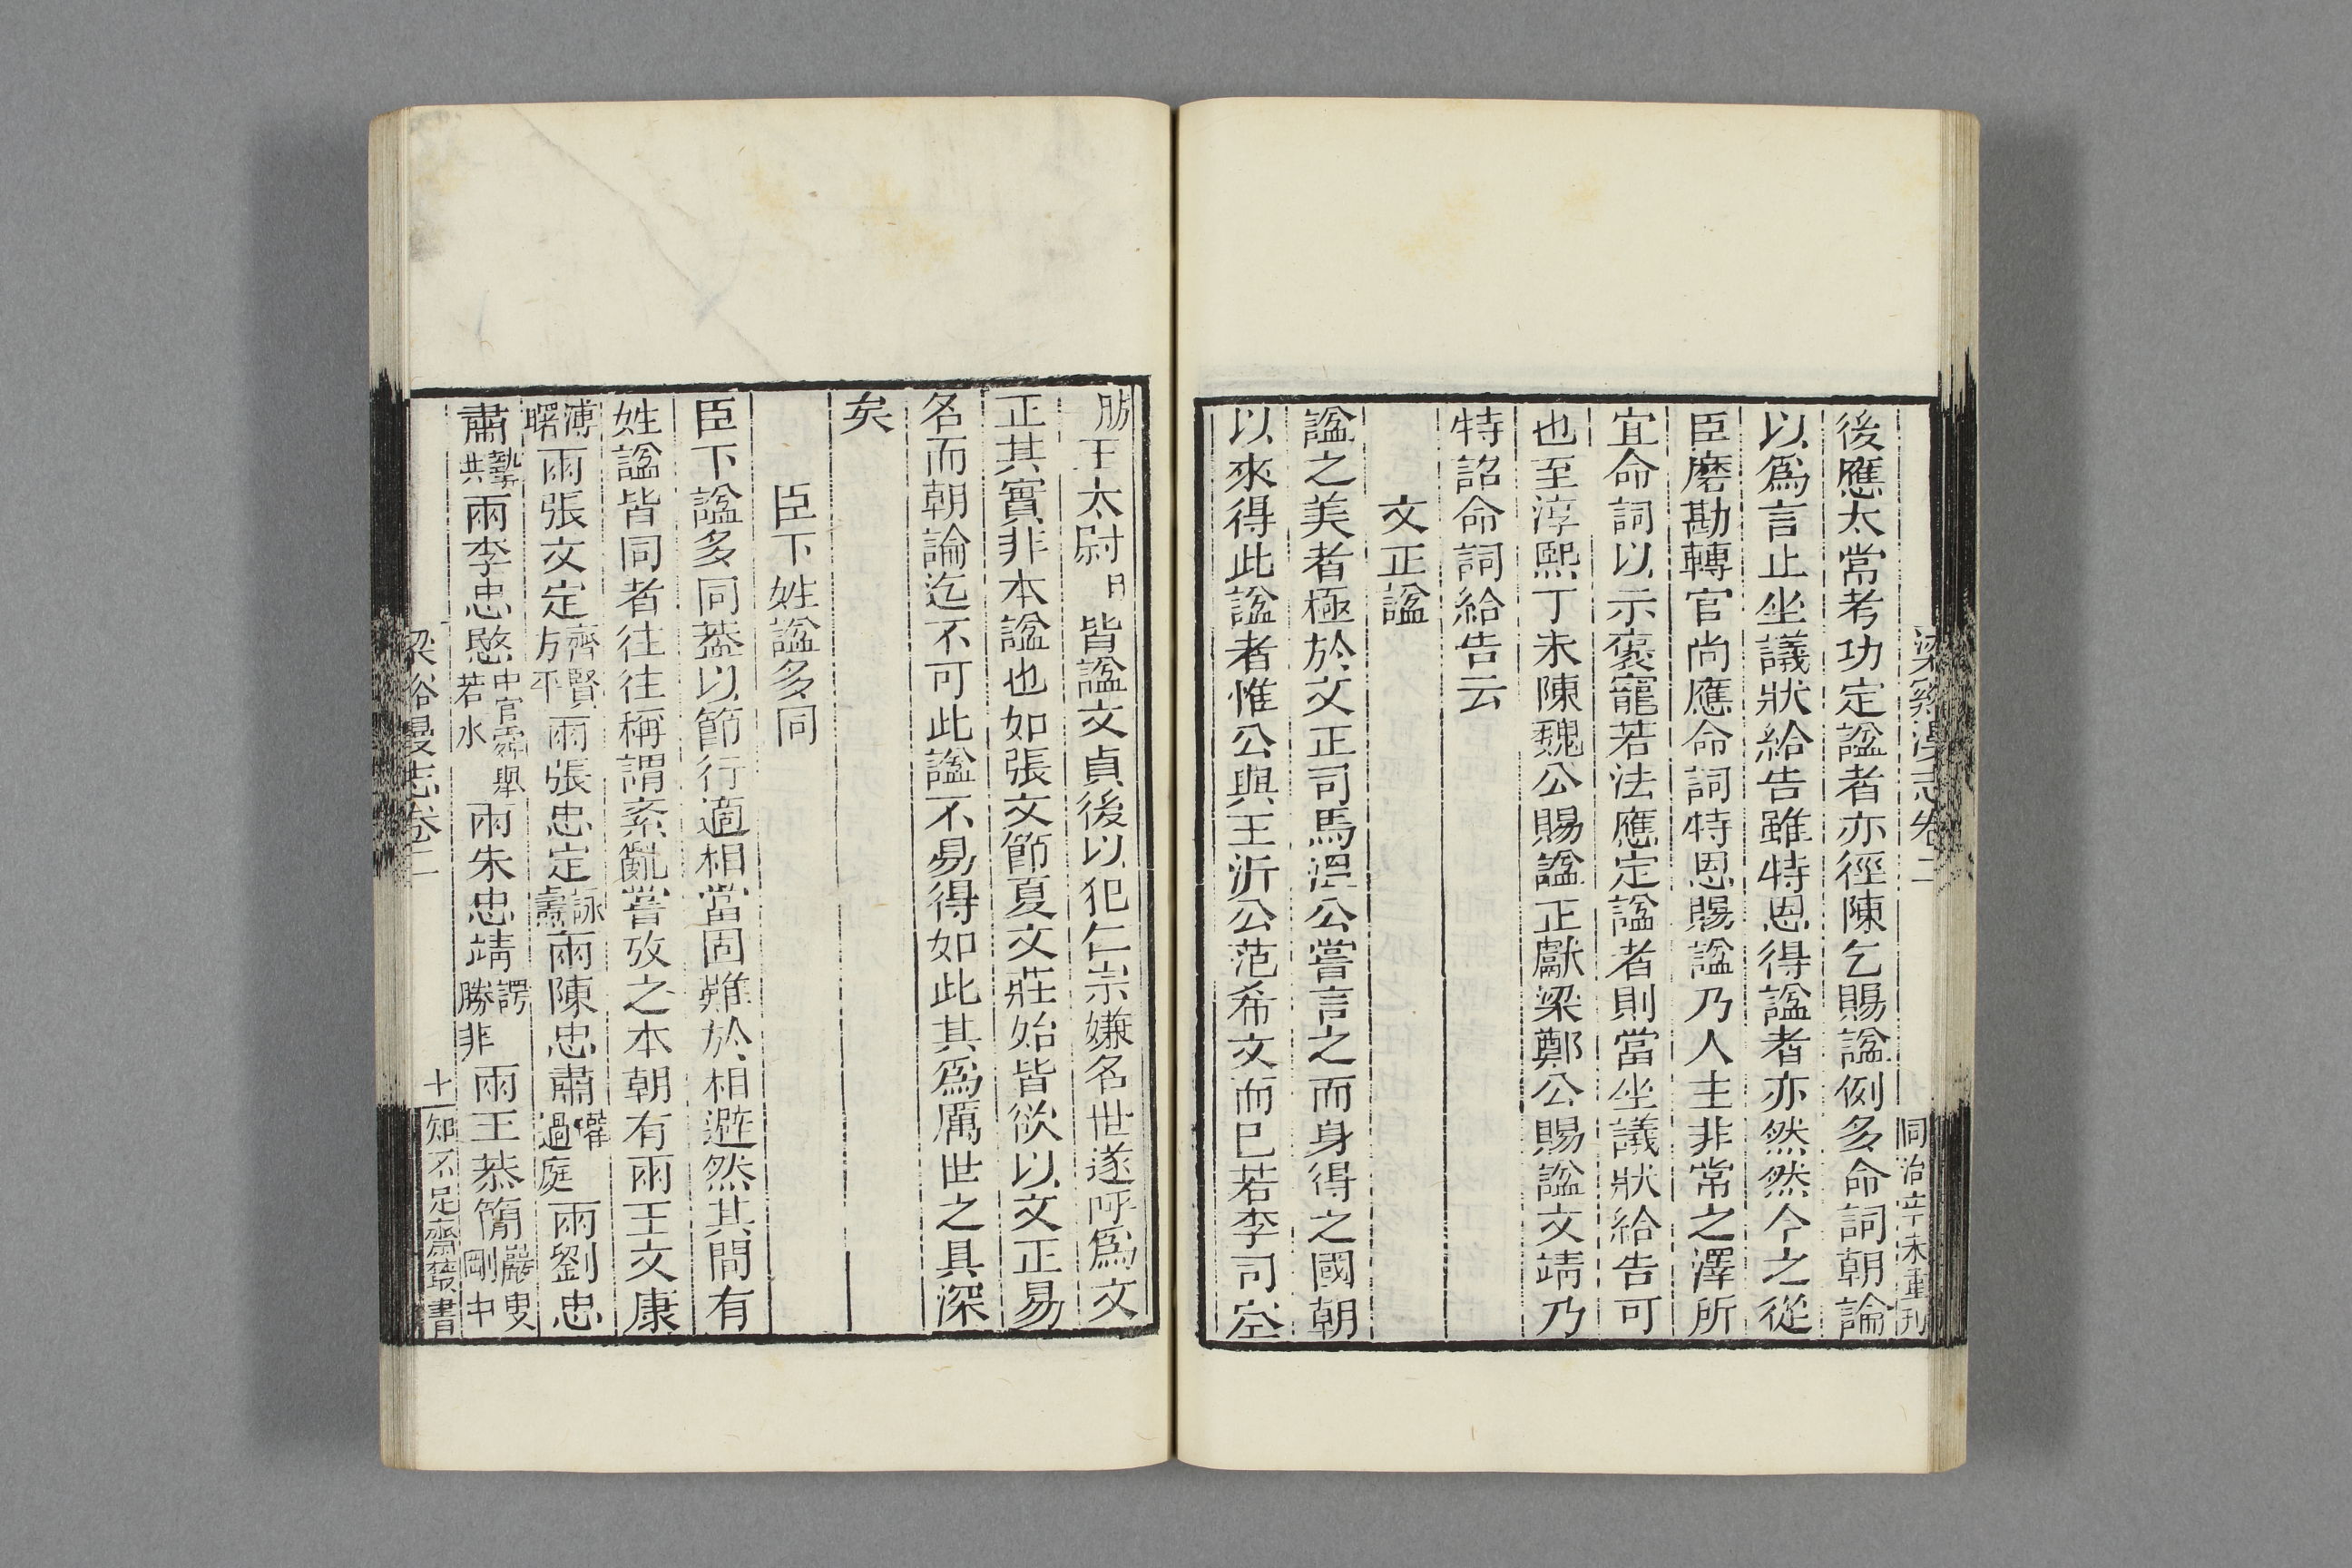 梁谿漫志卷二
同治辛未重刋
後應太常考功定諡者亦徑陳乞賜諡例多命詞朝論
以爲言止坐議狀給告雖特恩得諡者亦然然今之從
臣磨勘轉官尚應命詞特恩賜諡乃人主非常之澤所
宜命詞以示褒寵若法應定諡者則當坐議狀給告可
也至淳熙丁未陳魏公賜諡正獻梁鄭公賜諡文靖乃
特詔命詞給告云
文正諡
諡之美者極於文正司馬溫公嘗言之而身得之國朝
以來得此諡者惟公與王沂公范希文而已若李司空
昉王太尉旦皆諡文貞後以犯仁宗嫌名世遂呼爲文
正其實非本諡也如張文節夏文莊始皆欲以文正易
名而朝論迄不可此諡不易得如此其爲厲世之具深
矣
臣下姓諡多同
臣下諡多同葢以節行適相當固難於相避然其間有
姓諡皆同者往往稱謂紊亂嘗攷之本朝有兩王文康
溥曙兩張文定齊賢方平兩張忠定詠燾兩陳忠肅瓘過庭兩劉忠
肅摯珙兩李忠愍中官舜舉若水兩朱忠靖諤勝非兩王恭簡巖叟剛中
梁谿漫志卷二
十
知不足齋叢書